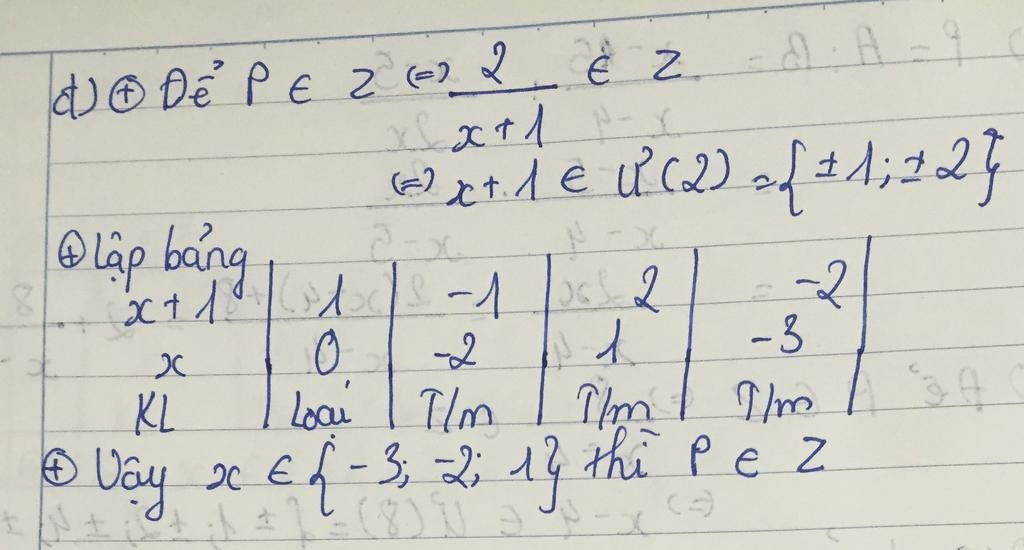 d) ⊕ Để P ∈ Z (=) 2/(x+1) ∈ Z
(=) x+1 ∈ Ư(2) = {±1; ±2}
⊕ Lập bảng
x+1 | 1 | -1 | 2 | -2 |
x | 0 | -2 | 1 | -3 |
KL | Loại | T/m | T/m | T/m |
⊕ Vậy x ∈ {-3; -2; 1} thì P ∈ Z